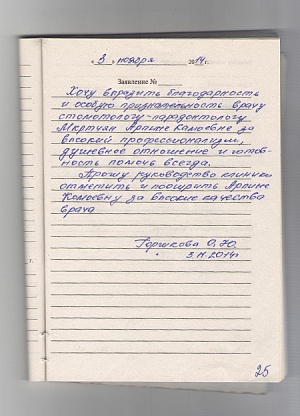 „ 3 „ ноября 2014 г.
Заявление №
Хочу выразить благодарность
и особую признательность врачу
стоматологу-парадонтологу
Мкртчян Арпине Камоевне за
высокий профессионализм,
душевное отношение и готов-
ность помочь всегда.
Прошу руководство клиники
отметить и поощрить Арпине
Камоевну за высокие качества
врача
Горшкова О.Ю.
3.11.2014г
25